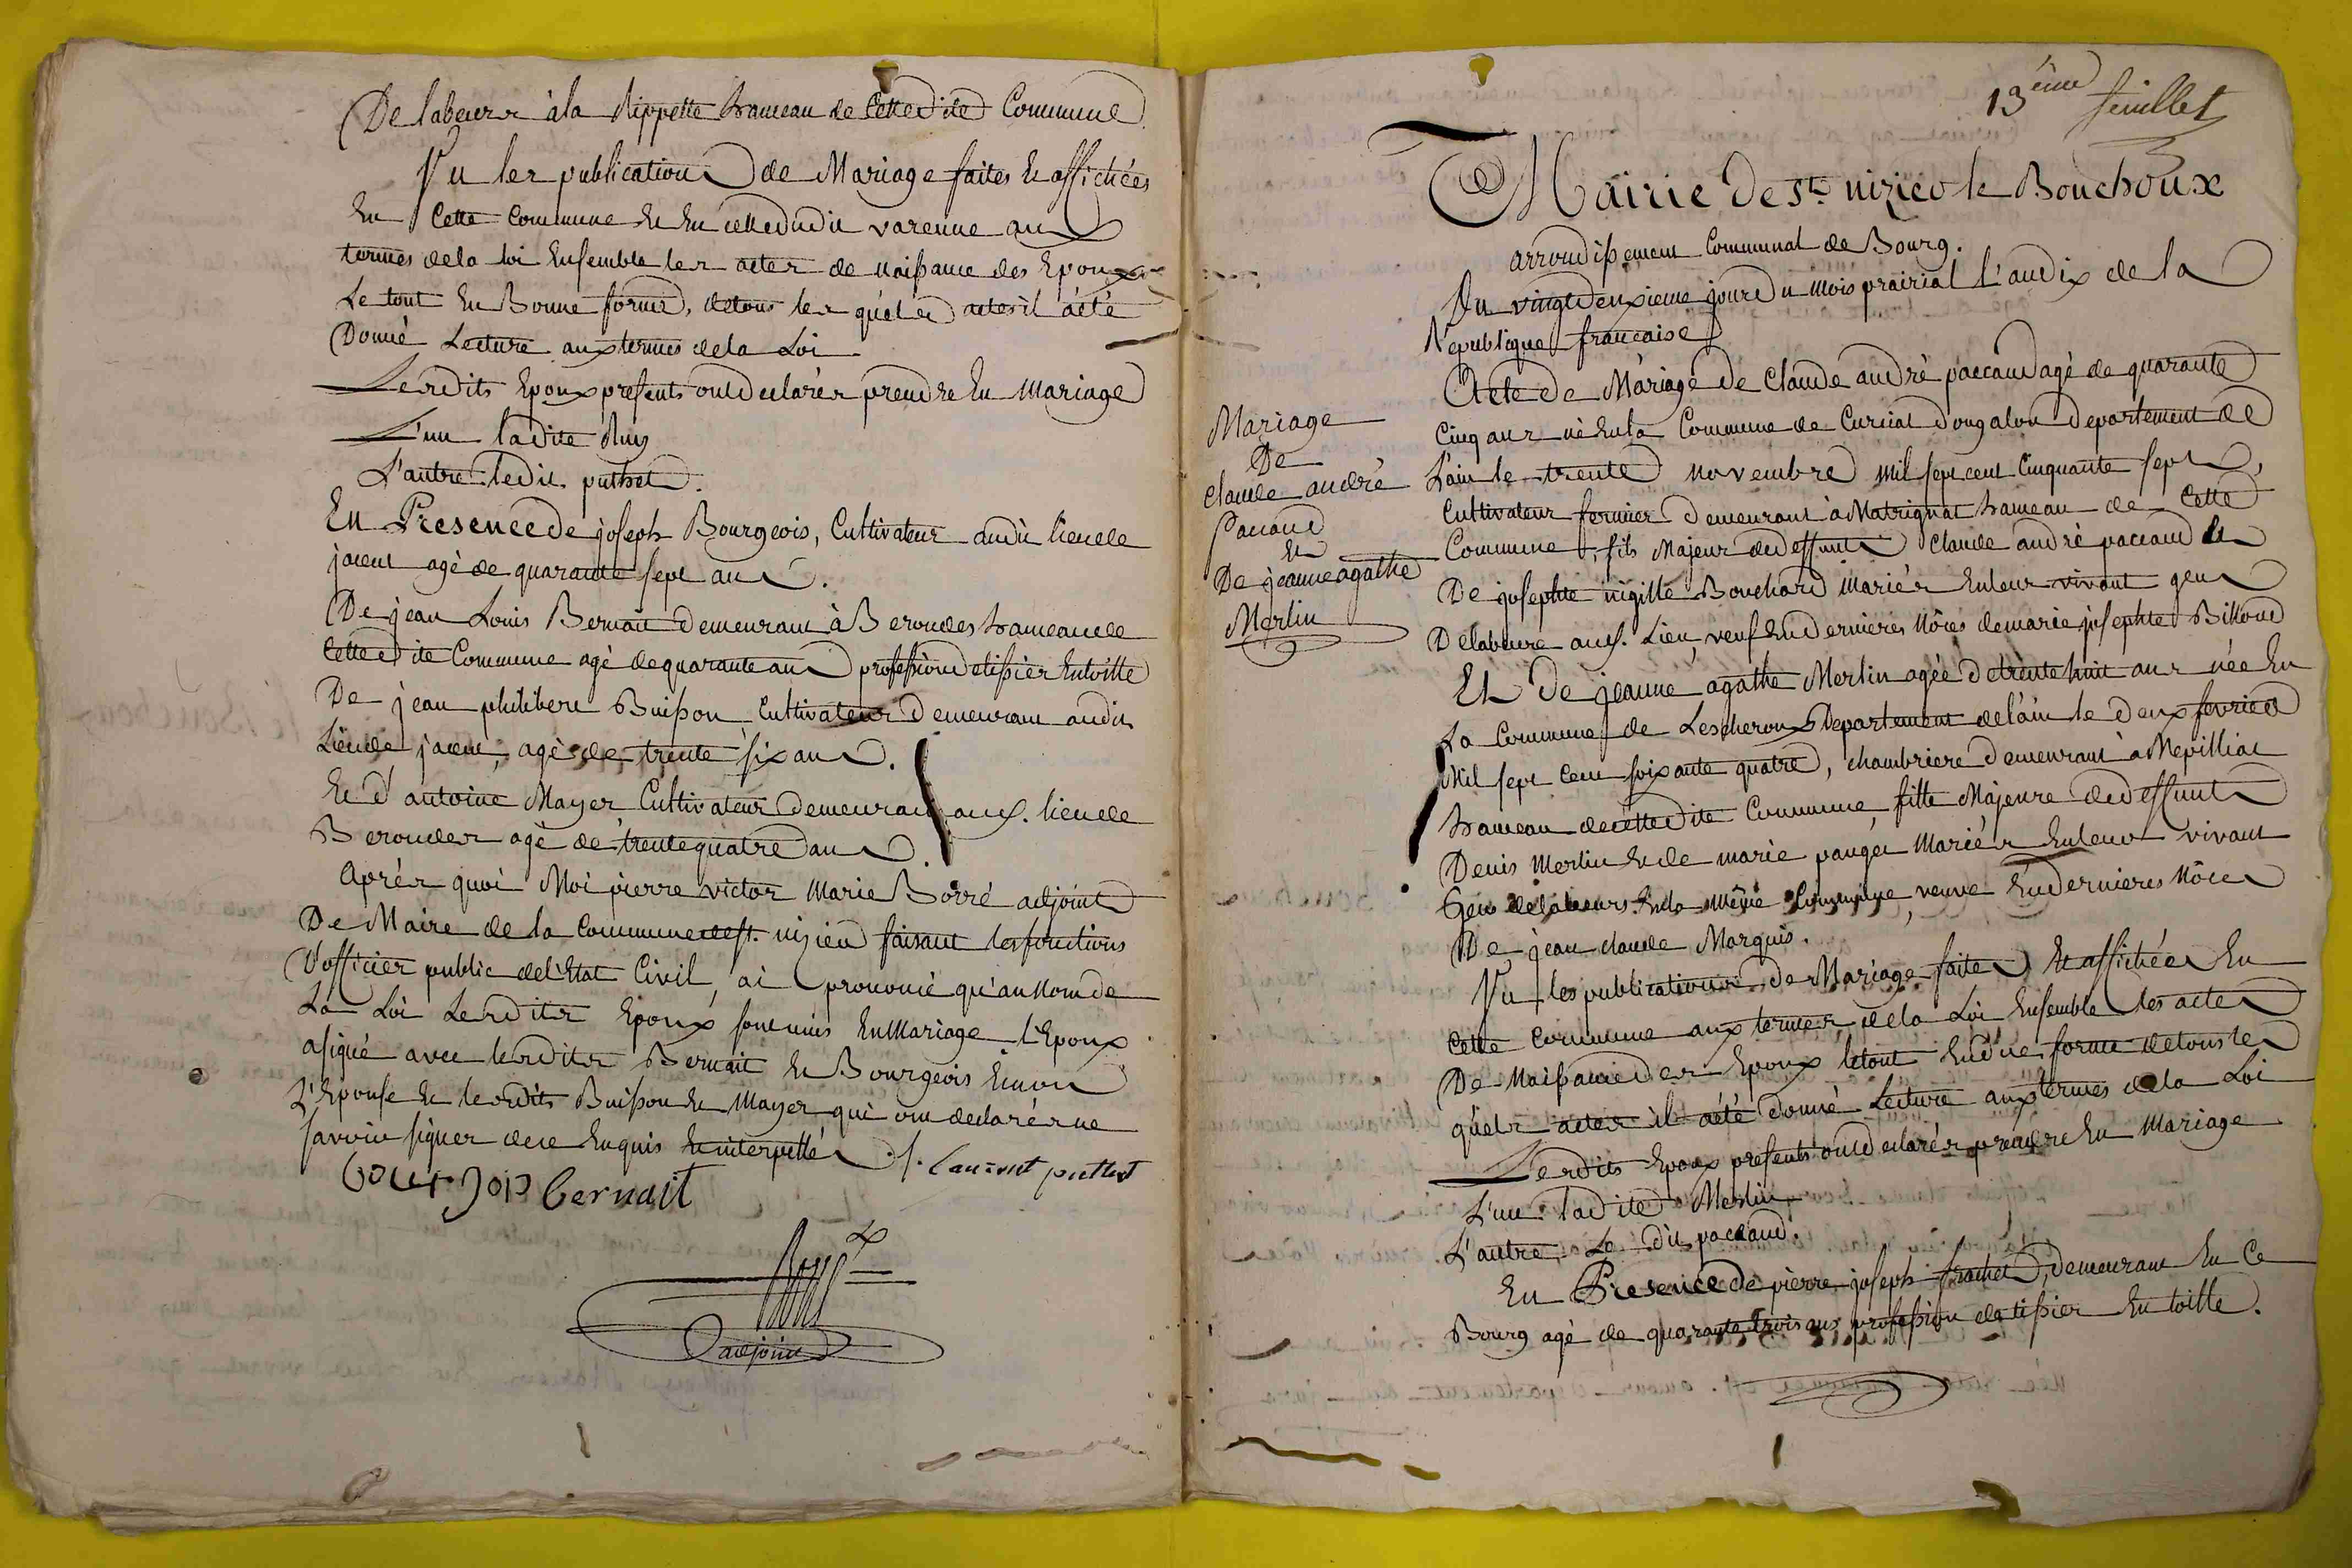 De labeurs à la Rippette hameau de Cettedite Commune
Vu les publications de Mariage faites Et affichées
En Cette Commune Et En celle dudit varenne aux
termes de la loi Ensemble les actes de naissance des Epoux
Le tout En Bonne forme, de tous les quéls actes il a été
Donné Lecture aux termes de la Loi
Lesdits Epoux presents ont declarér prendre En Mariage
L'un ladite
L'autre ledit puthet.
En Presence de joseph Bourgeois, Cultivateur audit lieu de
jaceur agé de quarante sept ans.
De jean Louis Bernait demeurant à Beroudes hameau de
Cettedite Commune agé de quarante ans profession de tissier Entoille
De jean philibert Buisson Cultivateur demeurant audit
Lieu de jaceur, agé de trente six ans.
Et d'antoine Mayer Cultivateur demeurant aus. lieu de
Beroudes agé de trente quatre ans.
Aprés quoi Moi pierre victor Marie Borré adjoint
De Maire de la Commune de st. nizier faisant les fonctions
D'officier public de l'Etat Civil, ai prononcé qu'au Nom de
La Loi Lesdits Epoux sont unis En Mariage l'Epoux
a signé avec lesdits Bernait Et Bourgeois Et non
L'Epouse Et lesdits Buisson Et Mayer qui ont declarér ne
savoir signer de ce Enquis Et interpellé. j. Laurent puthet
bourjois bernait
adjoint
13ème feuillet
Mairie de St. nizier le Bouchoux
arrondissement Communal de Bourg.
Du vingt deuxieme jour du mois prairial L'an dix de la
Republique française
Acte de Mariage de Claude andrè paccaud agé de quarante
Cinq ans né En la Commune de Curciat dongalon departement de
L'ain le trente Novembre Mil sept cent Cinquante sept,
Cultivateur fermier demeurant à Matrignat hameau de Cette
Commune, fils Majeur de deffunts Claude andrè paccaud Et
De josephte nigille Bouchard Mariér En leur vivant gens
De labeure aus. Lieu, veuf En dernieres Nôces de marie josephte Billoud
Et de jeanne agathe Merlin agée de trente huit ans née En
La Commune de Lescheroux Departement de l'ain le deux fevrier
Mil sept Cent soixante quatre, chambriere demeurant à Mepilliat
hameau de cettedite Commune, fille Majeure de deffunts
Denis Merlin Et de marie pauget Mariér En leur vivant
Gens de labeurs En la même Commune, veuve En dernieres Nôces
De jean claude Marquis.
Vu les publications de Mariage faites Et affichées En
Cette Commune aux termes de la Loi Ensemble les actes
De Naissance des Epoux le tout En due forme de tous les
quéls actes il a été donné Lecture aux termes de la Loi
Lesdits Epoux presents ont declarér prendre En Mariage
L'un ladite Merlin
L'autre Le dit paccaud.
En Presence de pierre joseph demeurant En Ce
Bourg agé de quarante trois ans profession de tissier En toille.
Mariage
De
Claude andrè
Paccaud
Et
De jeanne agathe
Merlin